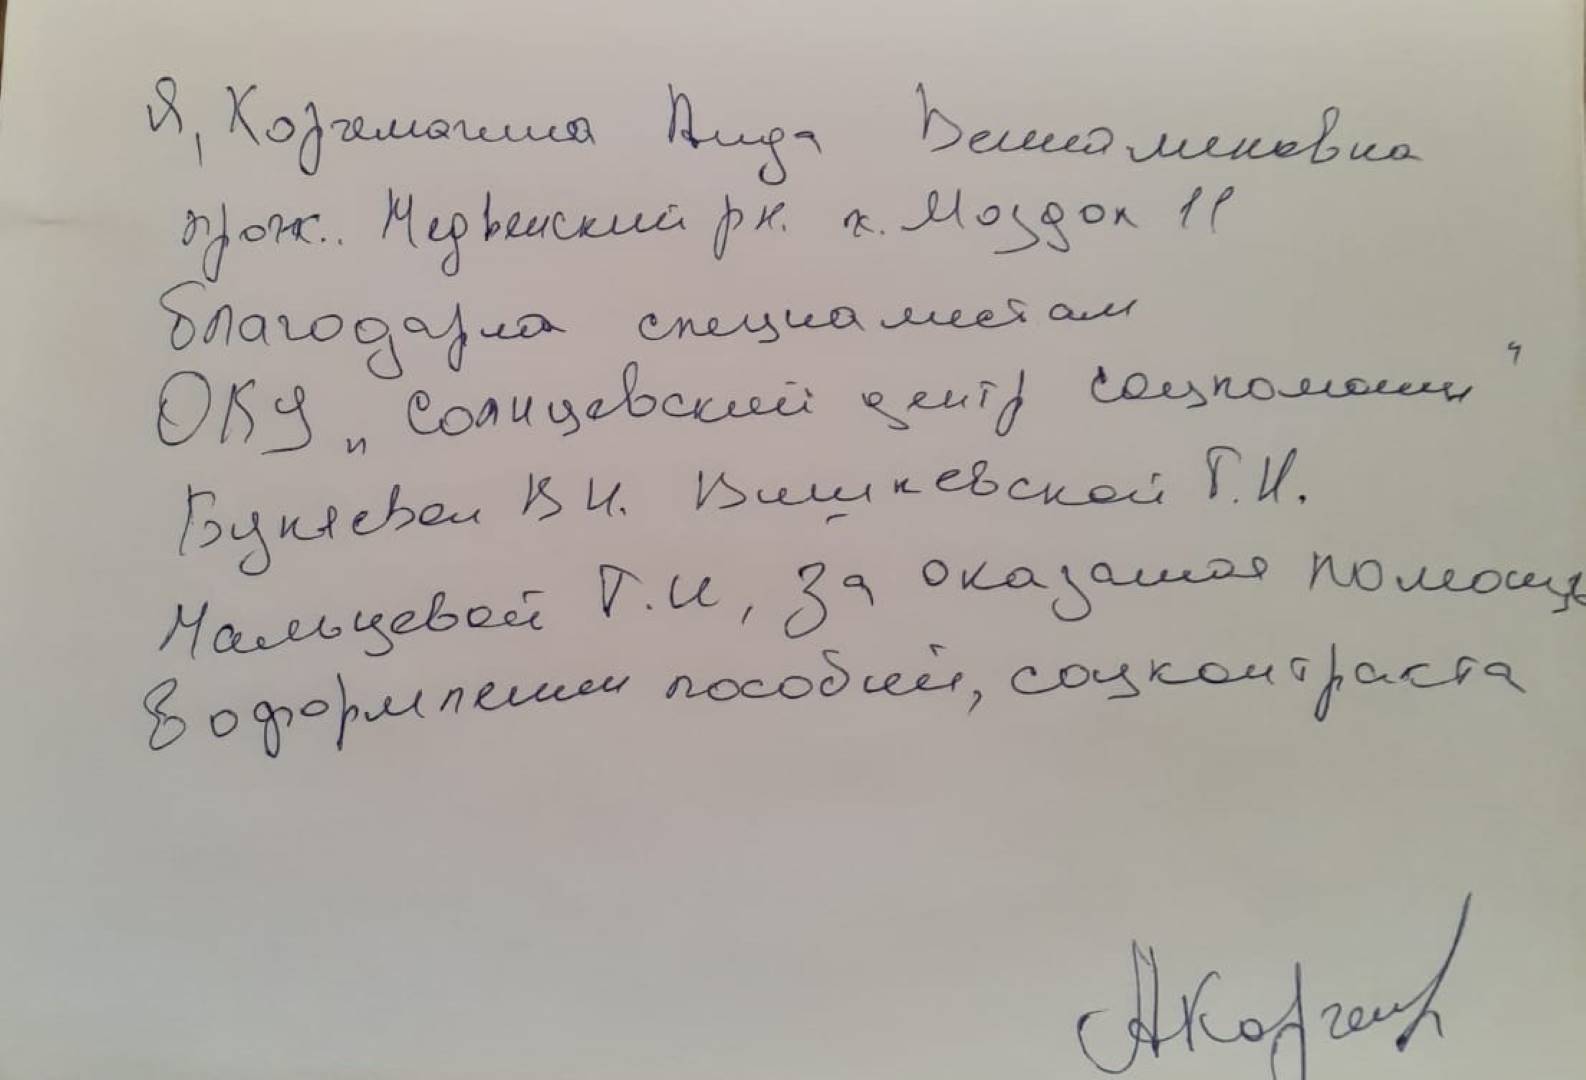 Я, Корчемагина Аида Вениаменовна
прож.. Медвенский рн. х. Моздок 11
благодарна специалистам
ОКУ „Солнцевский центр соцпомощи"
Букяевой В И. Вишневской Т.И.
Мальцевой Т.И, за оказаная помощь
в оформлении пособий, соцконтракта
АКорчем